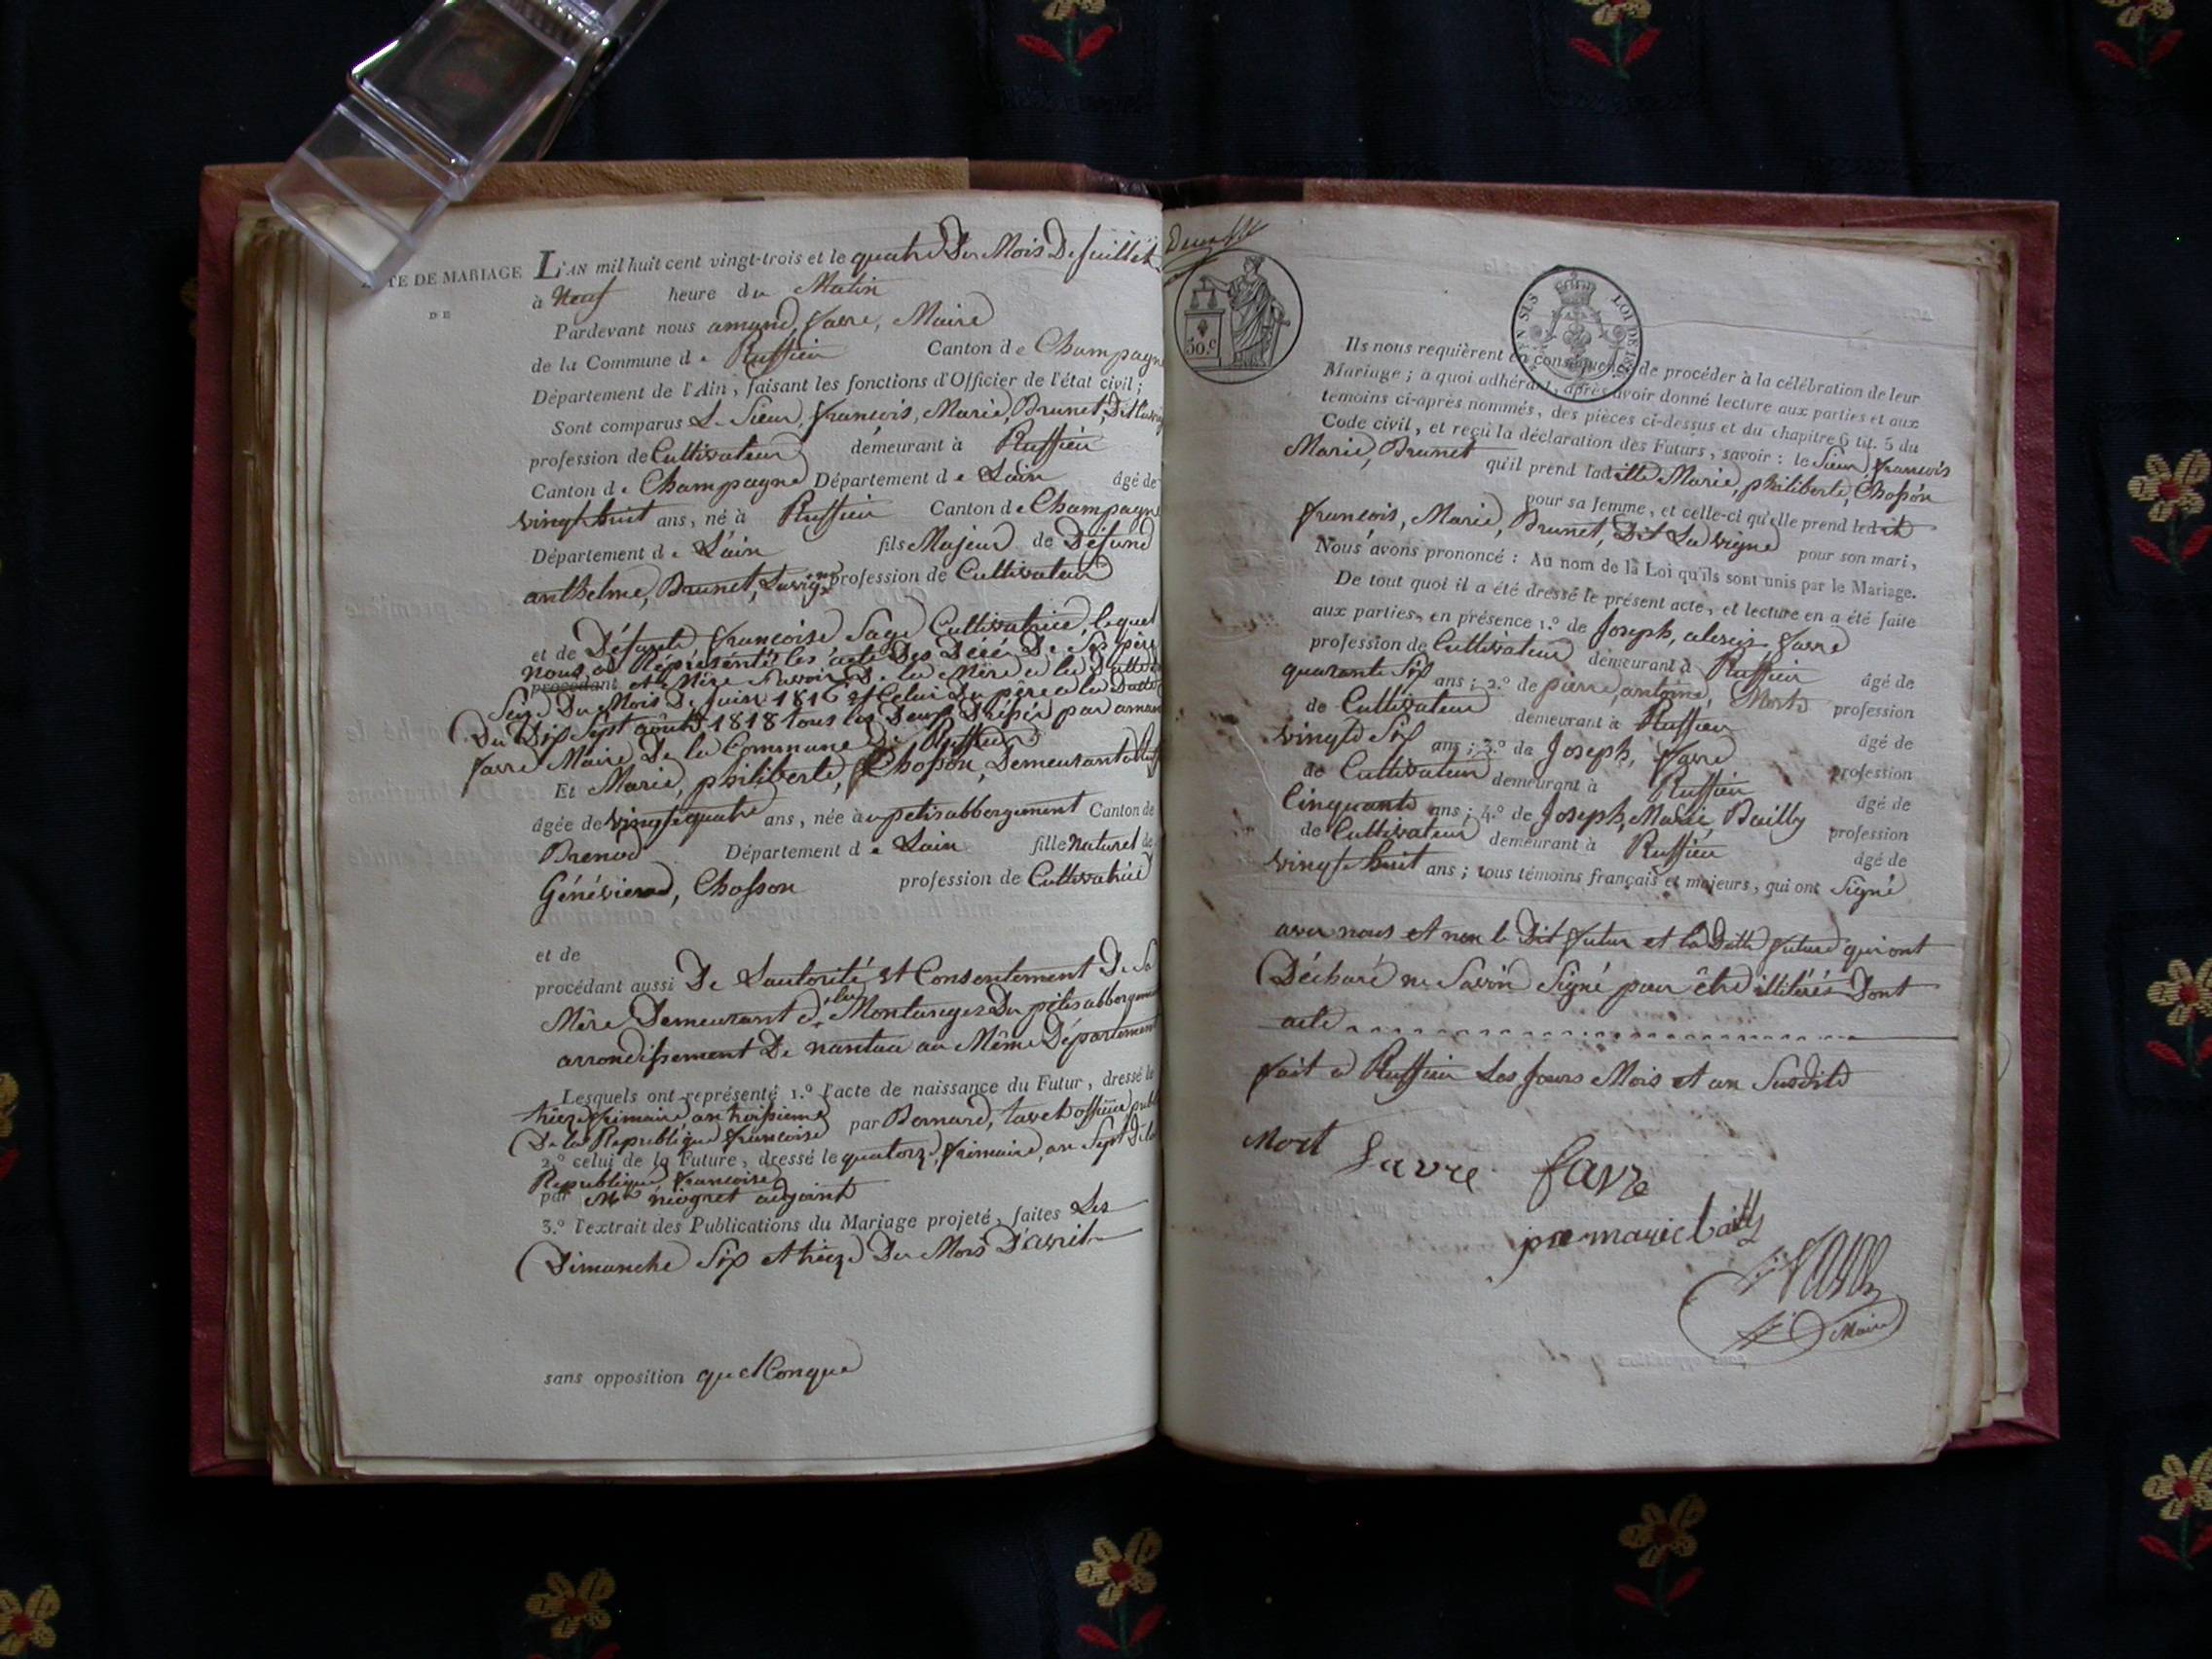 TE DE MARIAGE
DE
L'AN mil huit cent vingt-trois et le quatre Du Mois De Juillet
à Neuf heure du Matin
Pardevant nous amand, favre, Maire
de la Commune de Ruffieu Canton de Champagn
Département de l'Ain, faisant les fonctions d'Officier de l'état civil;
Sont comparus Le Sieur, françois, Marie, Brunet, Dit
profession de Cultivateur demeurant à Ruffieu
Canton de Champagne Département de Lain âgé de
vingt huit ans, né à Ruffieu Canton de Champagn
Département de L'ain fils Majeur de Defund
anthelme, Brunet, Lavigne profession de Cultivateur
et de Défunte françoise Sage Cultivatrice, lequel
nous a Réprésentés les acte Des Décés De Ses père
procédant et Mère Savoir De la Mère a la Datte
Seize Du Mois De Juin 1816 et Celui Du père a la Datte
Du Dix Sept août 1818 tous les Deux Drésés par aman
favre Maire De la Commune De Ruffieu
Et Marie, philiberte, Chosson, Demeurant a
âgée de vingt quatre ans, née au petit abbergement Canton de
Brenod Département de Lain fille naturel de
Génévieve, Chosson profession de Cultivatrice
et de
procédant aussi De Lautorité, et Consentement De Sa
Mère Demeurant Montanges Du petit abbergement
arrondissement De nantua au Même Département
Lesquels ont représenté 1.º l'acte de naissance du Futur, dressé le
trieze frimaire, an troisieme par Bernard, tavet officier publ
De la Republique françoise
2.º celui de la Future, dressé le quatorze, frimaire, an Sept De la
Republique françoise
par niogret adjoint
3.º l'extrait des Publications du Mariage projeté, faites Les
Dimanche Six et trieze Du Mois D'avril
sans opposition quelConque
50.c
LOI DE 18
Ils nous requièrent en conséquence de procéder à la célébration de leur
Mariage; a quoi adhérant, après avoir donné lecture aux parties et aux
témoins ci-après nommés, des pièces ci-dessus et du chapitre 6 tit. 5 du
Code civil, et reçu la déclaration des Futurs, savoir: le Sieur, françois
Marie, Brunet qu'il prend laditte Marie, philiberte, Chosson
pour sa femme, et celle-ci qu'elle prend ledit
françois, Marie, Brunet, Dit La vigne pour son mari,
Nous avons prononcé: Au nom de la Loi qu'ils sont unis par le Mariage.
De tout quoi il a été dressé le présent acte, et lecture en a été faite
aux parties, en présence 1.º de Joseph, alexis favre
profession de Cultivateur demeurant à Ruffieu âgé de
quarante Six ans; 2.º de pierre, antoine, Mort profession
de Cultivateur demeurant à Ruffieu âgé de
vingt Six ans; 3.º de Joseph, favre profession
de Cultivateur demeurant à Ruffieu âgé de
Cinquante ans; 4.º de Joseph, Marie, Bailly profession
de Cultivateur demeurant à Ruffieu âgé de
vingt huit ans; tous témoins français et majeurs, qui ont Signé
avec nous et non le Dit futur et la Ditte future qui ont
Déclaré ne Savoir Signé pour être illitérés Dont
acte
fait a Ruffieu Les Jours Mois et an Susdits
Mort favre favre
marie bailly
Maire